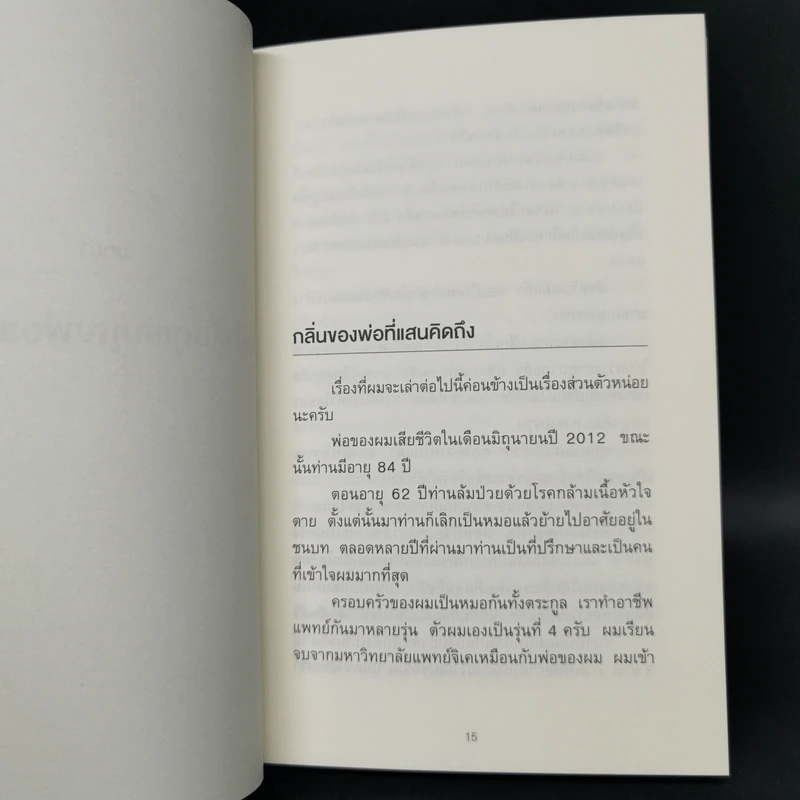 กลิ่นของพ่อที่แสนคิดถึง
เรื่องที่ผมจะเล่าต่อไปนี้ค่อนข้างเป็นเรื่องส่วนตัวหน่อย
นะครับ
พ่อของผมเสียชีวิตในเดือนมิถุนายนปี 2012 ขณะ
นั้นท่านมีอายุ 84 ปี
ตอนอายุ 62 ปีท่านล้มป่วยด้วยโรคกล้ามเนื้อหัวใจ
ตาย ตั้งแต่นั้นมาท่านก็เลิกเป็นหมอแล้วย้ายไปอาศัยอยู่ใน
ชนบท ตลอดหลายปีที่ผ่านมาท่านเป็นที่ปรึกษาและเป็นคน
ที่เข้าใจผมมากที่สุด
ครอบครัวของผมเป็นหมอกันทั้งตระกูล เราทำอาชีพ
แพทย์กันมาหลายรุ่น ตัวผมเองเป็นรุ่นที่ 4 ครับ ผมเรียน
จบจากมหาวิทยาลัยแพทย์จิเคเหมือนกับพ่อของผม ผมเข้า
15